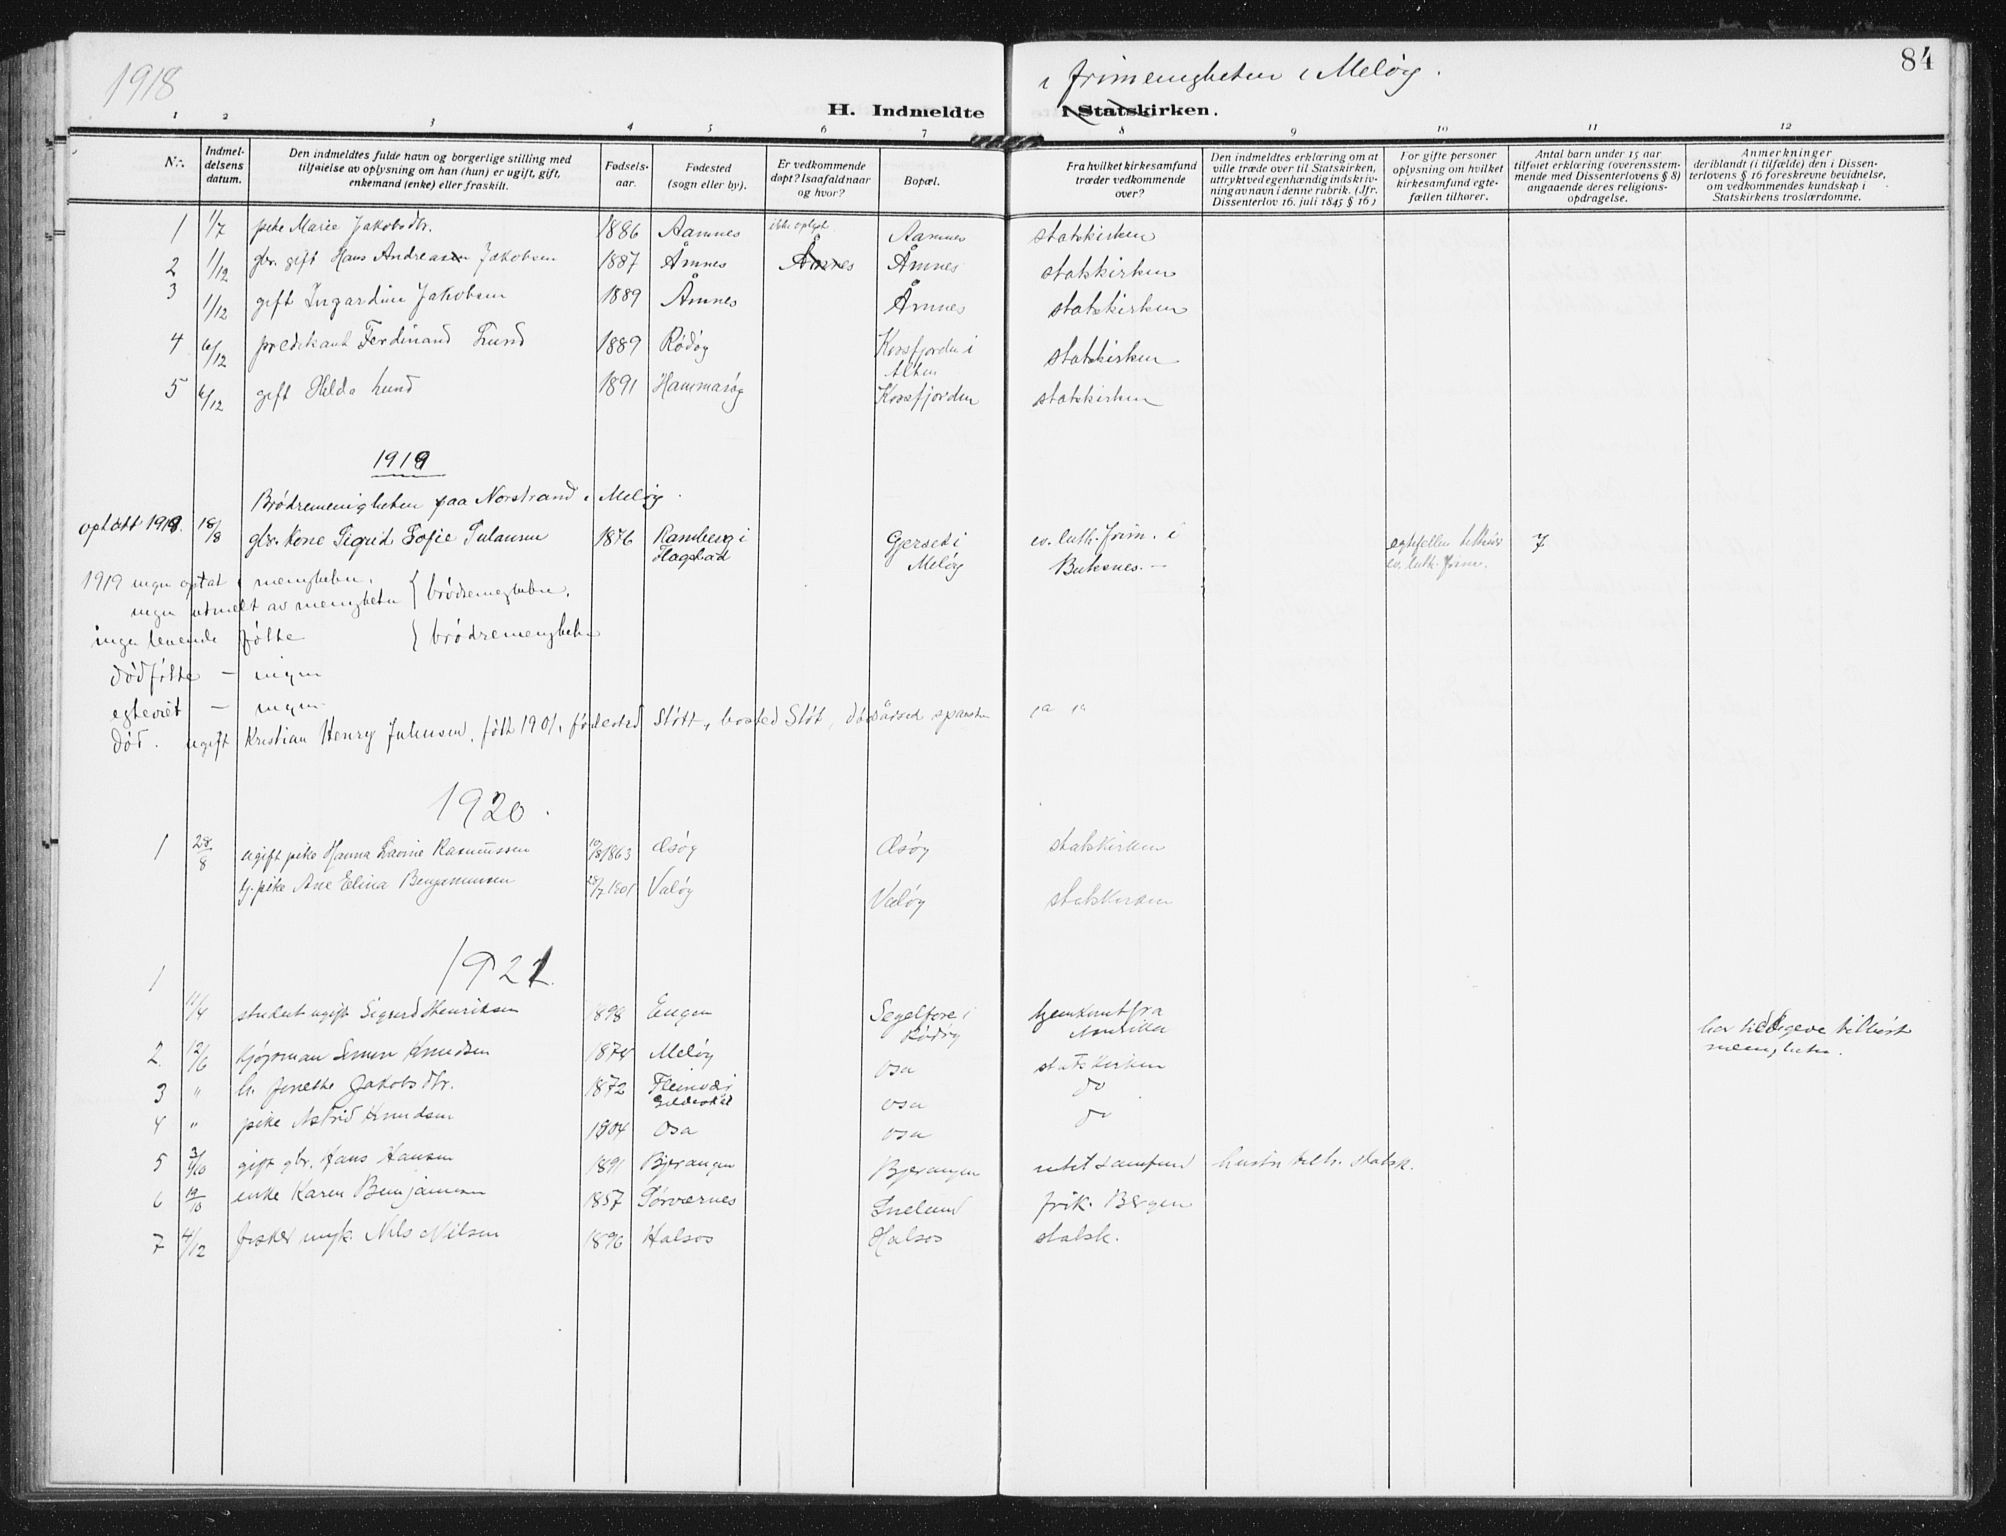 84
1918
i frimenigheten i Meløy.
H. Indmeldte i Statskirken.
1 2 3 4 5 6 7 8 9 10 11 12
Nr.
Indmeldelsens datum.
Den indmeldtes fulde havn og borgerlige stilling med tilføielse av oplysning om han (hun) er ugift, gift, enkemand (enke) eller fraskilt.
Fødselsaar.
Fødested (sogn eller by).
Er vedkommende døpt? Isaafald naar og hvor?
Bopæl.
Fra hvilket kirkesamfund træder vedkommende over?
Den indmeldtes erklæring om at ville træde over til Statskirken, uttrykt ved egenhændig indskrivning av navn i denne rubrik. (Jfr. Dissenterlov 16. juli 1845 § 16)
For gifte personer oplysning om hvilket kirkesamfund egtefællen tilhører.
Antal barn under 15 aar tilføiet erklæring (overensstemmende med Dissenterlovens § 8) angaaende deres religionsopdragelse.
Anmerkninger deriblandt (i tilfælde) den i Dissenterlovens § 16 foreskrevne bevidnelse, om vedkommendes kundskap i Statskirkens troslærdomme.
1 1/7 pike Marie Jakobsdtr. 1886 Aamnes ikke oplyst Aamnes statskirken
2 1/12 gbr. gift Hans Andreasen Jakobsen 1887 Åmnes Åmnes Åmnes statskirken
3 1/12 gift Ingardine Jakobsen 1889 Åmnes Åmnes statskirken
4 6/12 predikant Ferdinand Lund 1889 Rødøy Korsfjorden i Alten statskirken
5 6/12 gift Hilda Lund 1891 Hammarøy Korsfjorden statskirken
1919
Brødremenigheten paa Norstrand i Meløy.
optatt 1919. 18/8 gbr. Kone Sigrid Sofie Julausen 1876 Ramberg i Flagstad Gjersed i Meløy ev. luth. frim. i Buksnes. — egtefellen tilhører ev. luth. frim. 7
1919 ingen optat i menigheten.
ingen utmelt av menigheten } brødremenigheten.
ingen levende følte } brødremenigheten
dødfølte — ingen
egteviet — ingen
død. ugift Kristian Henry Julausen, født 1901, fødested Støtt, bosted Støt, dødsårsad spanske
1920.
1 28/8 ugift pike Hanna Lavine Rasmussen 10/8 1863 Æsøy Æsøy statskirken
tj. pike Ane Elina Benjaminsen 28/7 1901 Valøy Valøy statskirken
1921
1 11/4 student ugift Sigurd Henriksen 1898 Engen Segelfore i Rødøy hjemkomt fra Amerika har tidligere tilhørt menigheten.
2. 12/6 gift Simon Knudsen 1874 Meløy osa statskirken
3 " h. Jenette Jakobsdtr. 1872 Fleinvær Gildeskål osa do
4 " pike Astrid Knudsen 1904 Osa osa do
5 3/10 gift gbr. Hans Hansen 1891 Bjerangen Bjerangen intet samfund hustr. tilh. statsk.
6 19/10 enke Karen Benjaminsen 1857 Sørværnes frik. Bergen
7 4/12 fisker ungk. Nils Nilsen 1896 Halsos Halsos statsk.